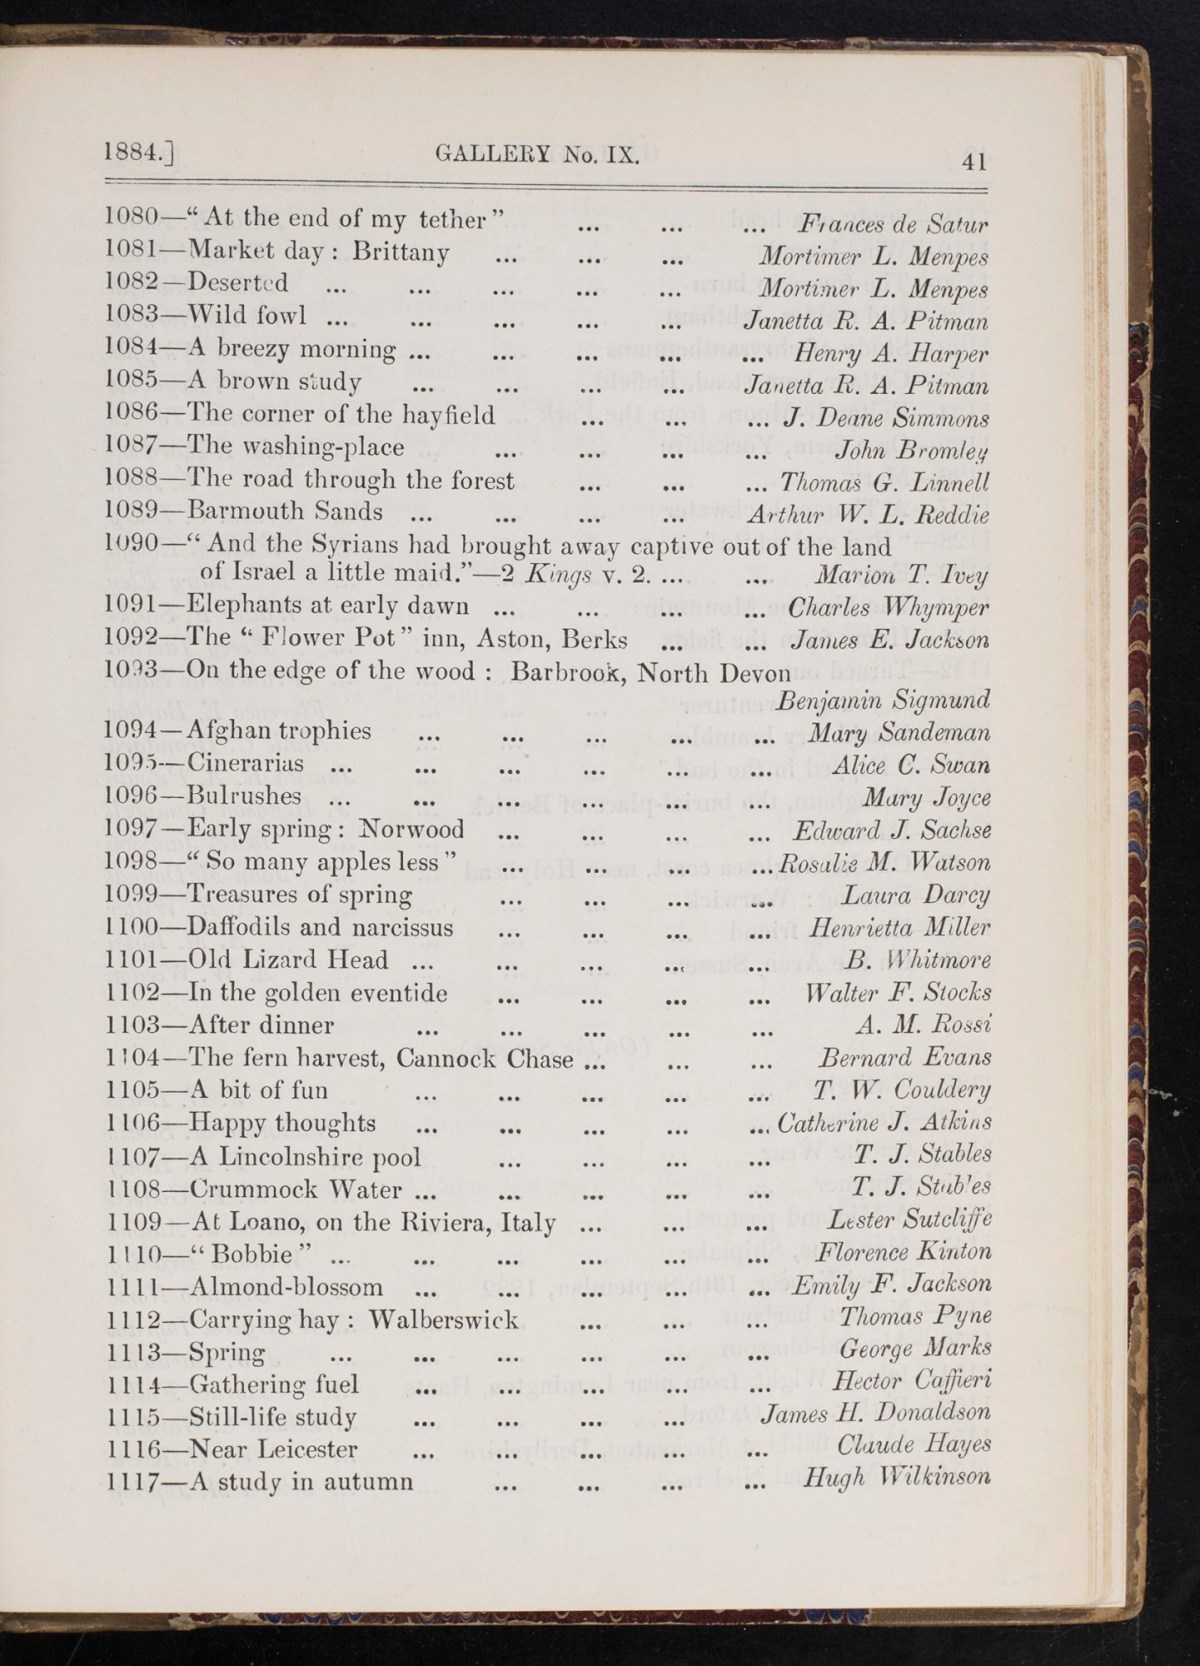 1884.] GALLERY No. IX. 41
1080—“At the end of my tether” ... ... ... Frances de Satur
1081—Market day : Brittany ... ... ... Mortimer L. Menpes
1082—Deserted ... ... ... ... ... Mortimer L. Menpes
1083—Wild fowl ... ... ... ... ... Janetta R. A. Pitman
1084—A breezy morning ... ... ... ... ... Henry A. Harper
1085—A brown study ... ... ... ... Janetta R. A. Pitman
1086—The corner of the hayfield ... ... ... J. Deane Simmons
1087—The washing-place ... ... ... ... John Bromley
1088—The road through the forest ... ... ... Thomas G. Linnell
1089—Barmouth Sands ... ... ... ... Arthur W. L. Reddie
1090—“And the Syrians had brought away captive out of the land
of Israel a little maid.”—2 Kings v. 2. ... ... Marion T. Ivey
1091—Elephants at early dawn ... ... ... ... Charles Whymper
1092—The “Flower Pot” inn, Aston, Berks ... ... James E. Jackson
1093—On the edge of the wood : Barbrook, North Devon
Benjamin Sigmund
1094—Afghan trophies ... ... ... ... ... Mary Sandeman
1095—Cinerarias ... ... ... ... ... ... Alice C. Swan
1096—Bulrushes ... ... ... ... ... ... Mary Joyce
1097—Early spring : Norwood ... ... ... ... Edward J. Sachse
1098—“So many apples less” ... ... ... ... Rosalie M. Watson
1099—Treasures of spring ... ... ... ... Laura Darcy
1100—Daffodils and narcissus ... ... ... ... Henrietta Miller
1101—Old Lizard Head ... ... ... ... ... B. Whitmore
1102—In the golden eventide ... ... ... ... Walter F. Stocks
1103—After dinner ... ... ... ... ... A. M. Rossi
1104—The fern harvest, Cannock Chase ... ... ... Bernard Evans
1105—A bit of fun ... ... ... ... ... T. W. Couldery
1106—Happy thoughts ... ... ... ... ... Catherine J. Atkins
1107—A Lincolnshire pool ... ... ... ... T. J. Stables
1108—Crummock Water ... ... ... ... ... T. J. Stables
1109—At Loano, on the Riviera, Italy ... ... ... Lester Sutcliffe
1110—“Bobbie” ... ... ... ... ... ... Florence Kinton
1111—Almond-blossom ... ... ... ... ... Emily F. Jackson
1112—Carrying hay : Walberswick ... ... ... Thomas Pyne
1113—Spring ... ... ... ... ... ... George Marks
1114—Gathering fuel ... ... ... ... ... Hector Caffieri
1115—Still-life study ... ... ... ... James H. Donaldson
1116—Near Leicester ... ... ... ... ... Claude Hayes
1117—A study in autumn ... ... ... ... Hugh Wilkinson